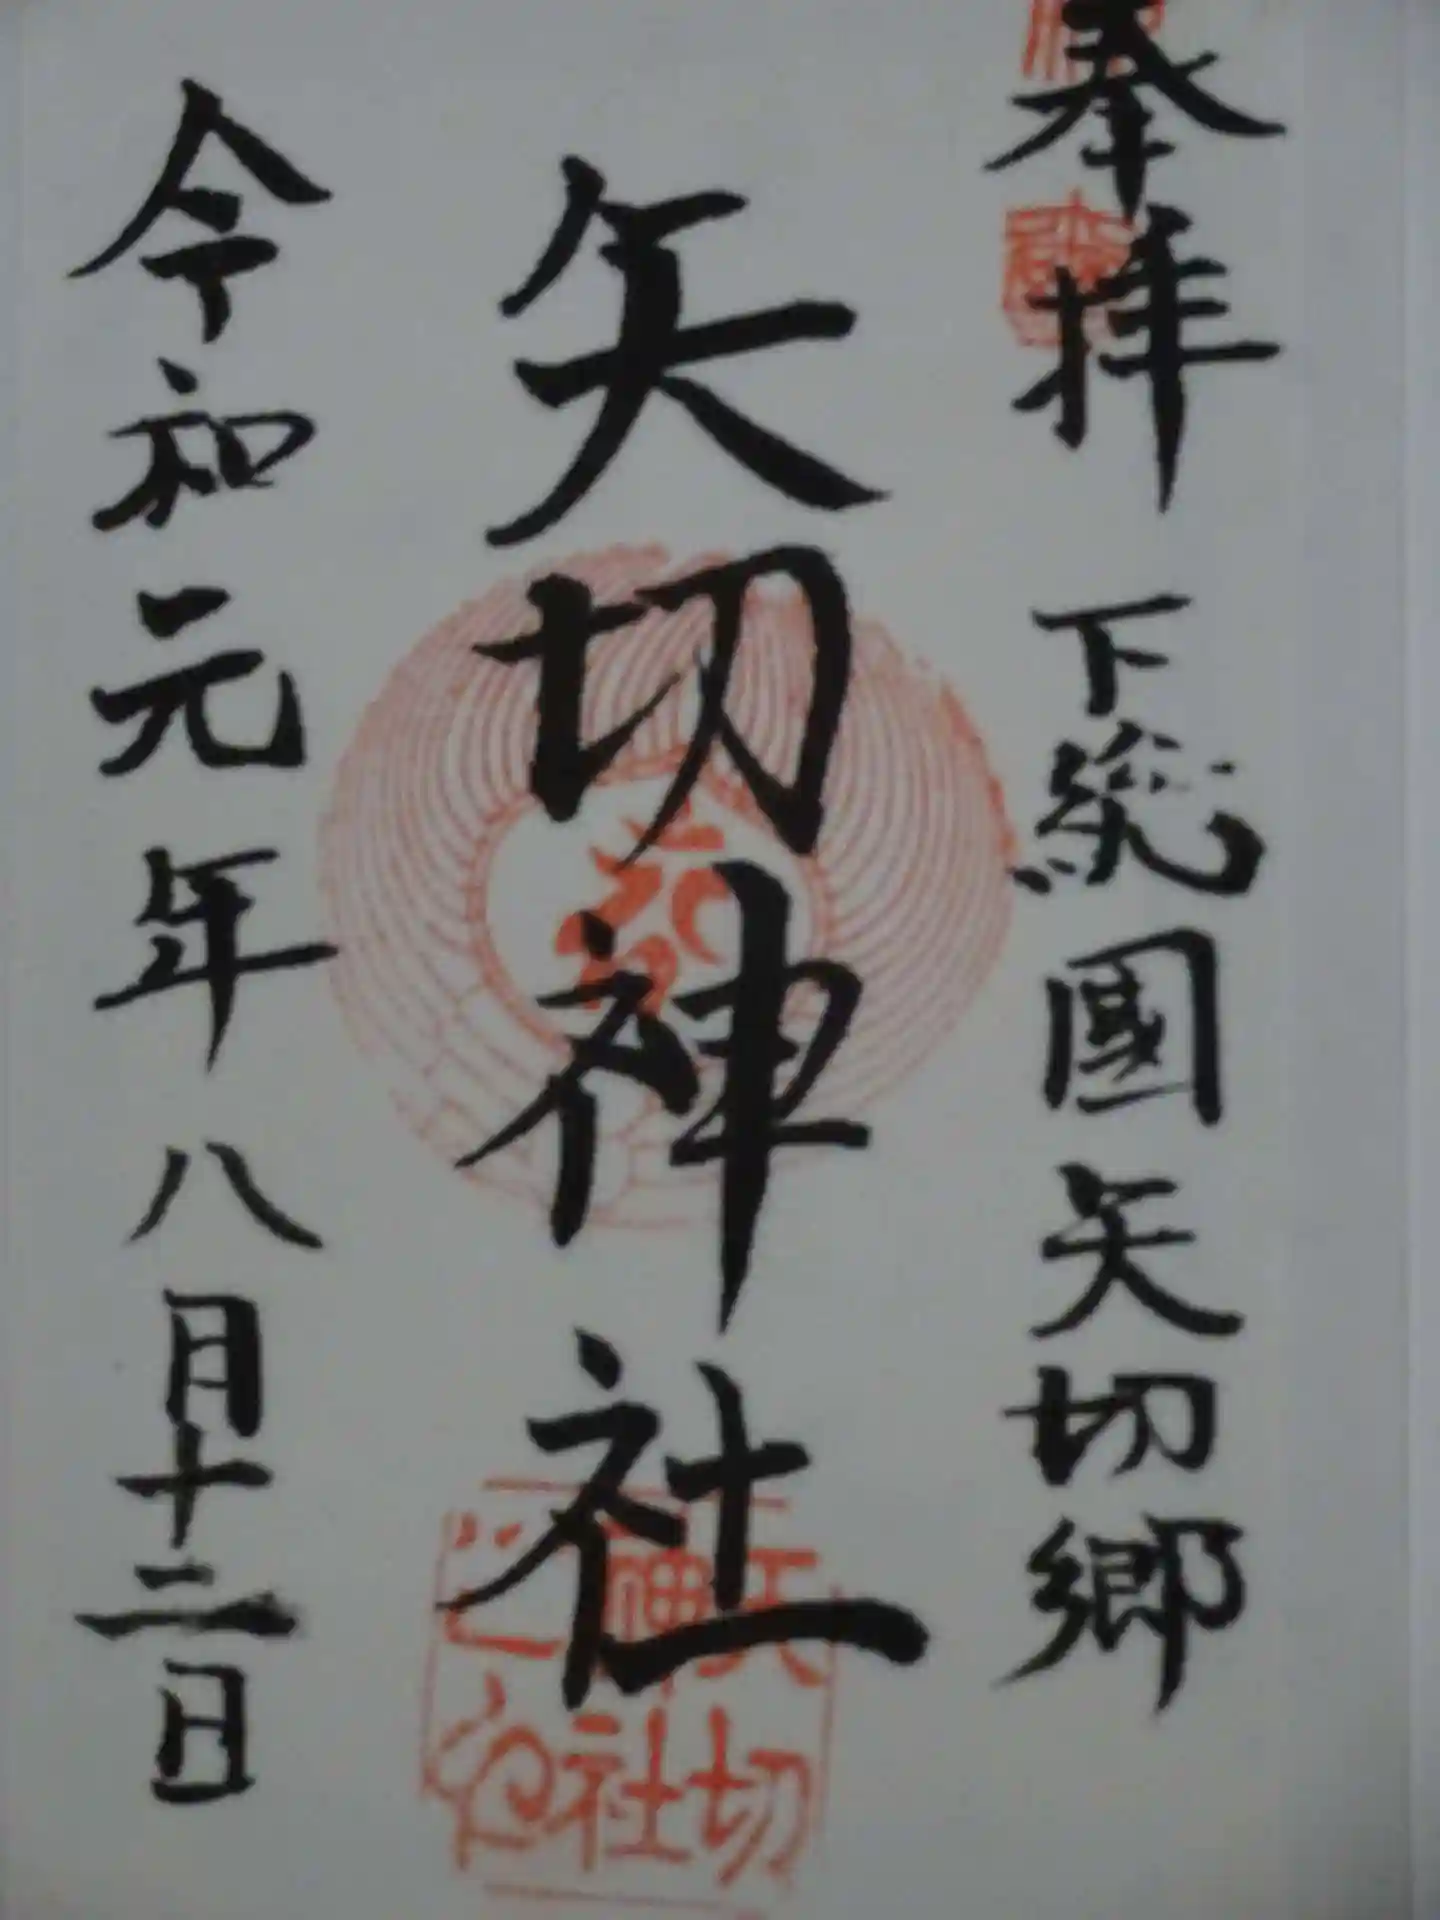 奉拝 下総國矢切郷
矢切神社
令和元年八月十二日
矢切
神社
之印